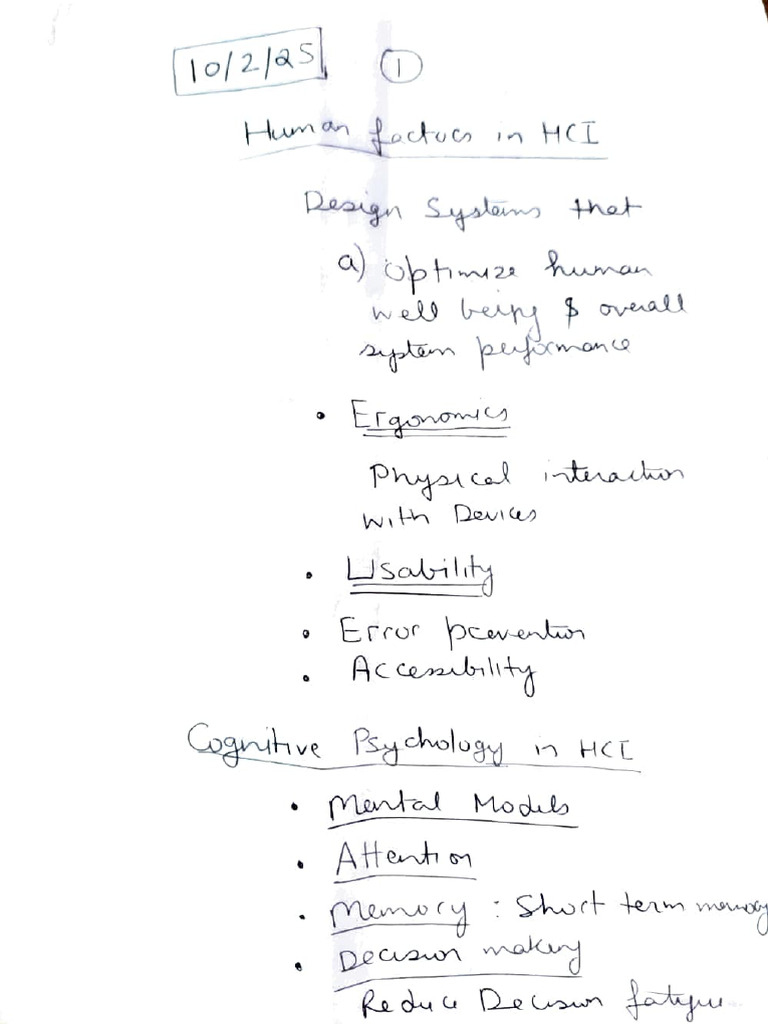 10/2/25 1
Human factors in HCI
Design Systems that
a) optimize human
well being & overall
system performance
• Ergonomics
Physical interaction
with Devices
• Usability
• Error prevention
• Accessibility
Cognitive Psychology in HCI
• Mental Models
• Attention
• Memory : Short term memory
• Decision making
Reduce Decision fatigue